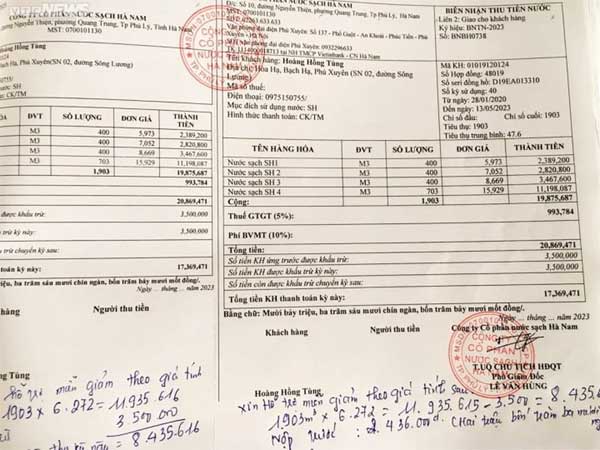 CÔNG TY CỔ PHẦN NƯỚC SẠCH HÀ NAM
Nguyễn Thiện, phường Quang Trung, Tp Phủ Lý, Tỉnh Hà Nam
MST: 0700101130
Hoàng Hồng Tùng
Hạ, Phú Xuyên(SN 02, đường Sông Lương)
0975150755/
SH
CK/TM
ĐVT SỐ LƯỢNG ĐƠN GIÁ THÀNH TIỀN
M3 400 5,973 2,389,200
M3 400 7,052 2,820,800
M3 400 8,669 3,467,600
M3 703 15,929 11,198,087
1,903 19,875,687
993,784
20,869,471
được khấu trừ: 3,500,000
3,500,000
trừ chuyển kỳ sau:
toán kỳ này: 17,369,471
triệu, ba trăm sáu chín ngàn, bốn trăm bảy mươi mốt đồng/.
Ngày ... tháng ... năm 2023
Người thu tiền
miễn giảm theo giá tính
1903 x 6.272 = 11.935.616
3.500.000
8.435.616
Đ/c: Số 10, đường Nguyễn Thiện, phường Quang Trung, Tp Phủ Lý, Hà Nam
MST: 0700101130
Văn phòng đại diện Phú Xuyên: Số 137 - Phố Guột - An Khoái - Phúc Tiến - Phú Xuyên - Hà Nội
Văn phòng đại diện Phú Xuyên: 0932296633
TK: 111400018713 tại NH TMCP Vietinbank - CN Hà Nam
Tên khách hàng: Hoàng Hồng Tùng
Địa chỉ: Hòa Hạ, Bạch Hạ, Phú Xuyên (SN 02, đường Sông Lương)
Mã số thuế:
Điện thoại: 0975150755/
Mục đích sử dụng nước: SH
Hình thức thanh toán: CK/TM
BIÊN NHẬN THU TIỀN NƯỚC
Liên 2: Giao cho khách hàng
Ký hiệu: BNTN-2023
Số: BNBH0738
Mã KH: 01019120124
Số Hợp đồng: 48019
Số Seri: D19EA013310
Kỳ sử dụng: 40
Từ ngày: 28/01/2020
Đến ngày: 13/05/2023
Chỉ số đầu: Chỉ số cuối: 1903
Tiêu thụ: 1903
Tiêu thụ trung bình: 47.6
TÊN HÀNG HÓA ĐVT SỐ LƯỢNG ĐƠN GIÁ THÀNH TIỀN
Nước sạch SH1 M3 400 5,973 2,389,200
Nước sạch SH 2 M3 400 7,052 2,820,800
Nước sạch SH 3 M3 400 8,669 3,467,600
Nước sạch SH 4 M3 703 15,929 11,198,087
Cộng: 1,903 19,875,687
Thuế GTGT (5%): 993,784
Phí BVMT (10%):
Tổng tiền: 20,869,471
Số tiền KH ứng trước được khấu trừ: 3,500,000
Số tiền KH được khấu trừ kỳ này: 3,500,000
Số tiền còn được khấu trừ chuyển kỳ sau:
Tổng tiền KH thanh toán kỳ này: 17,369,471
Bằng chữ: Mười bảy triệu, ba trăm sáu chín ngàn, bốn trăm bảy mươi mốt đồng/.
Ngày ... tháng ... năm 2023
Khách hàng Người thu tiền Công ty Cổ phần nước sạch Hà Nam
CÔNG TY
CỔ PHẦN
NƯỚC SẠCH
HÀ NAM
T.UQ CHỦ TỊCH HĐQT
Phó Giám Đốc
LÊ VĂN HÙNG
Hoàng Hồng Tùng
xin Hỗ trợ miễn giảm theo giá tính sau
1903m³ x 6.272 = 11.935.615 - 3.500 = 8.435
Nộp trước: 8.436.000đ